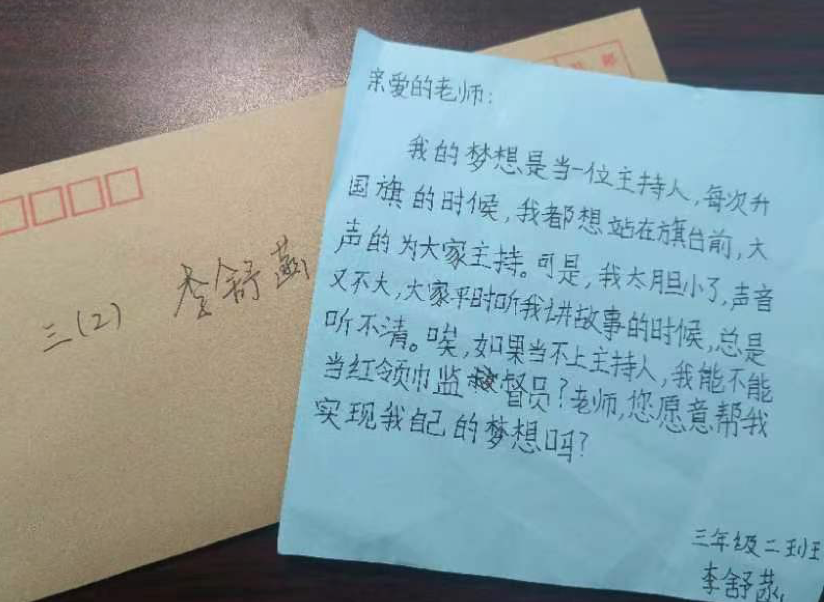 亲爱的老师:
我的梦想是当一位主持人,每次升
国旗的时候,我都想站在旗台前,大
声的为大家主持。可是,我太胆小了,声音
又不大,大家平时听我讲故事的时候,总是
听不清。唉,如果当不上主持人,我能不能
当红领巾监督员?老师,您愿意帮我
实现我自己的梦想吗?
三年级二班
李舒
三(2) 李舒